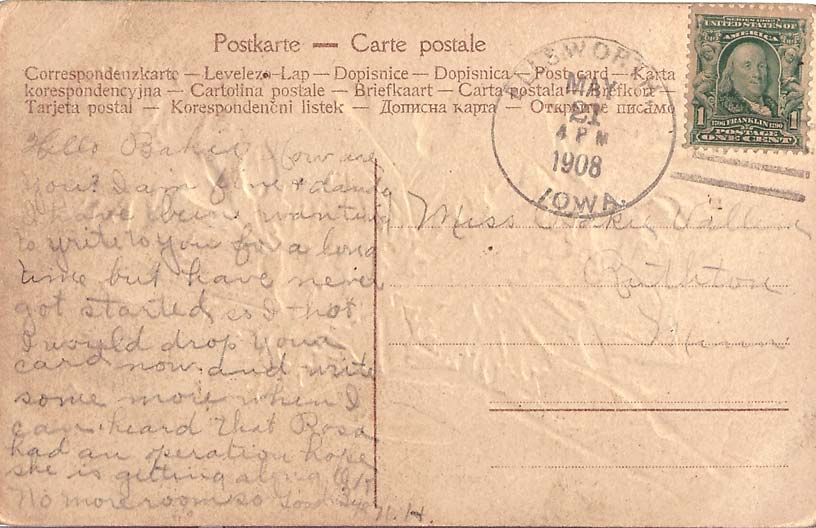 Postkarte — Carte postale
Correspondenzkarte — Levelező-Lap — Dopisnice — Dopisnica — Post card — Karta
korespondencyjna — Cartolina postale — Briefkaart — Carta postala — Brefkort —
Tarjeta postal — Korespondenční listek — Дописна карта — Открытое письмо
AINSWORTH
MAY
21
4 PM
1908
IOWA
SERIES 1902
UNITED STATES OF
AMERICA
1 1706 FRANKLIN 1790 1
POSTAGE
ONE CENT
Hello how are
you? I am fine & dandy
I have been wanting
to write to you for a long
time but have never
got started so I thot
I would drop you a
card now and write
some more when I
can. heard that Rosa
had an operation hope
she is getting along
No more room so Good
H.
Miss
Ruthton
Minn